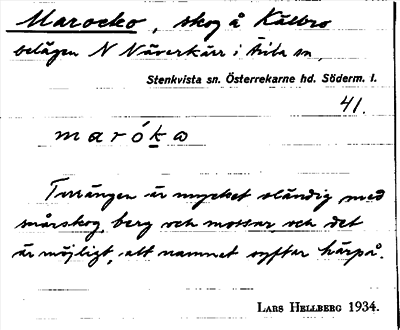 Marocko, skog å Kälbro
belägen N Näverkärr i Ärla sn,
Stenkvista sn. Österrekarne hd. Söderm. l.
41.
maróka
Terrängen är mycket eländig med
snårskog, berg och mossar, och det
är möjligt, att namnet syftar härpå.
LARS HELLBERG 1934.